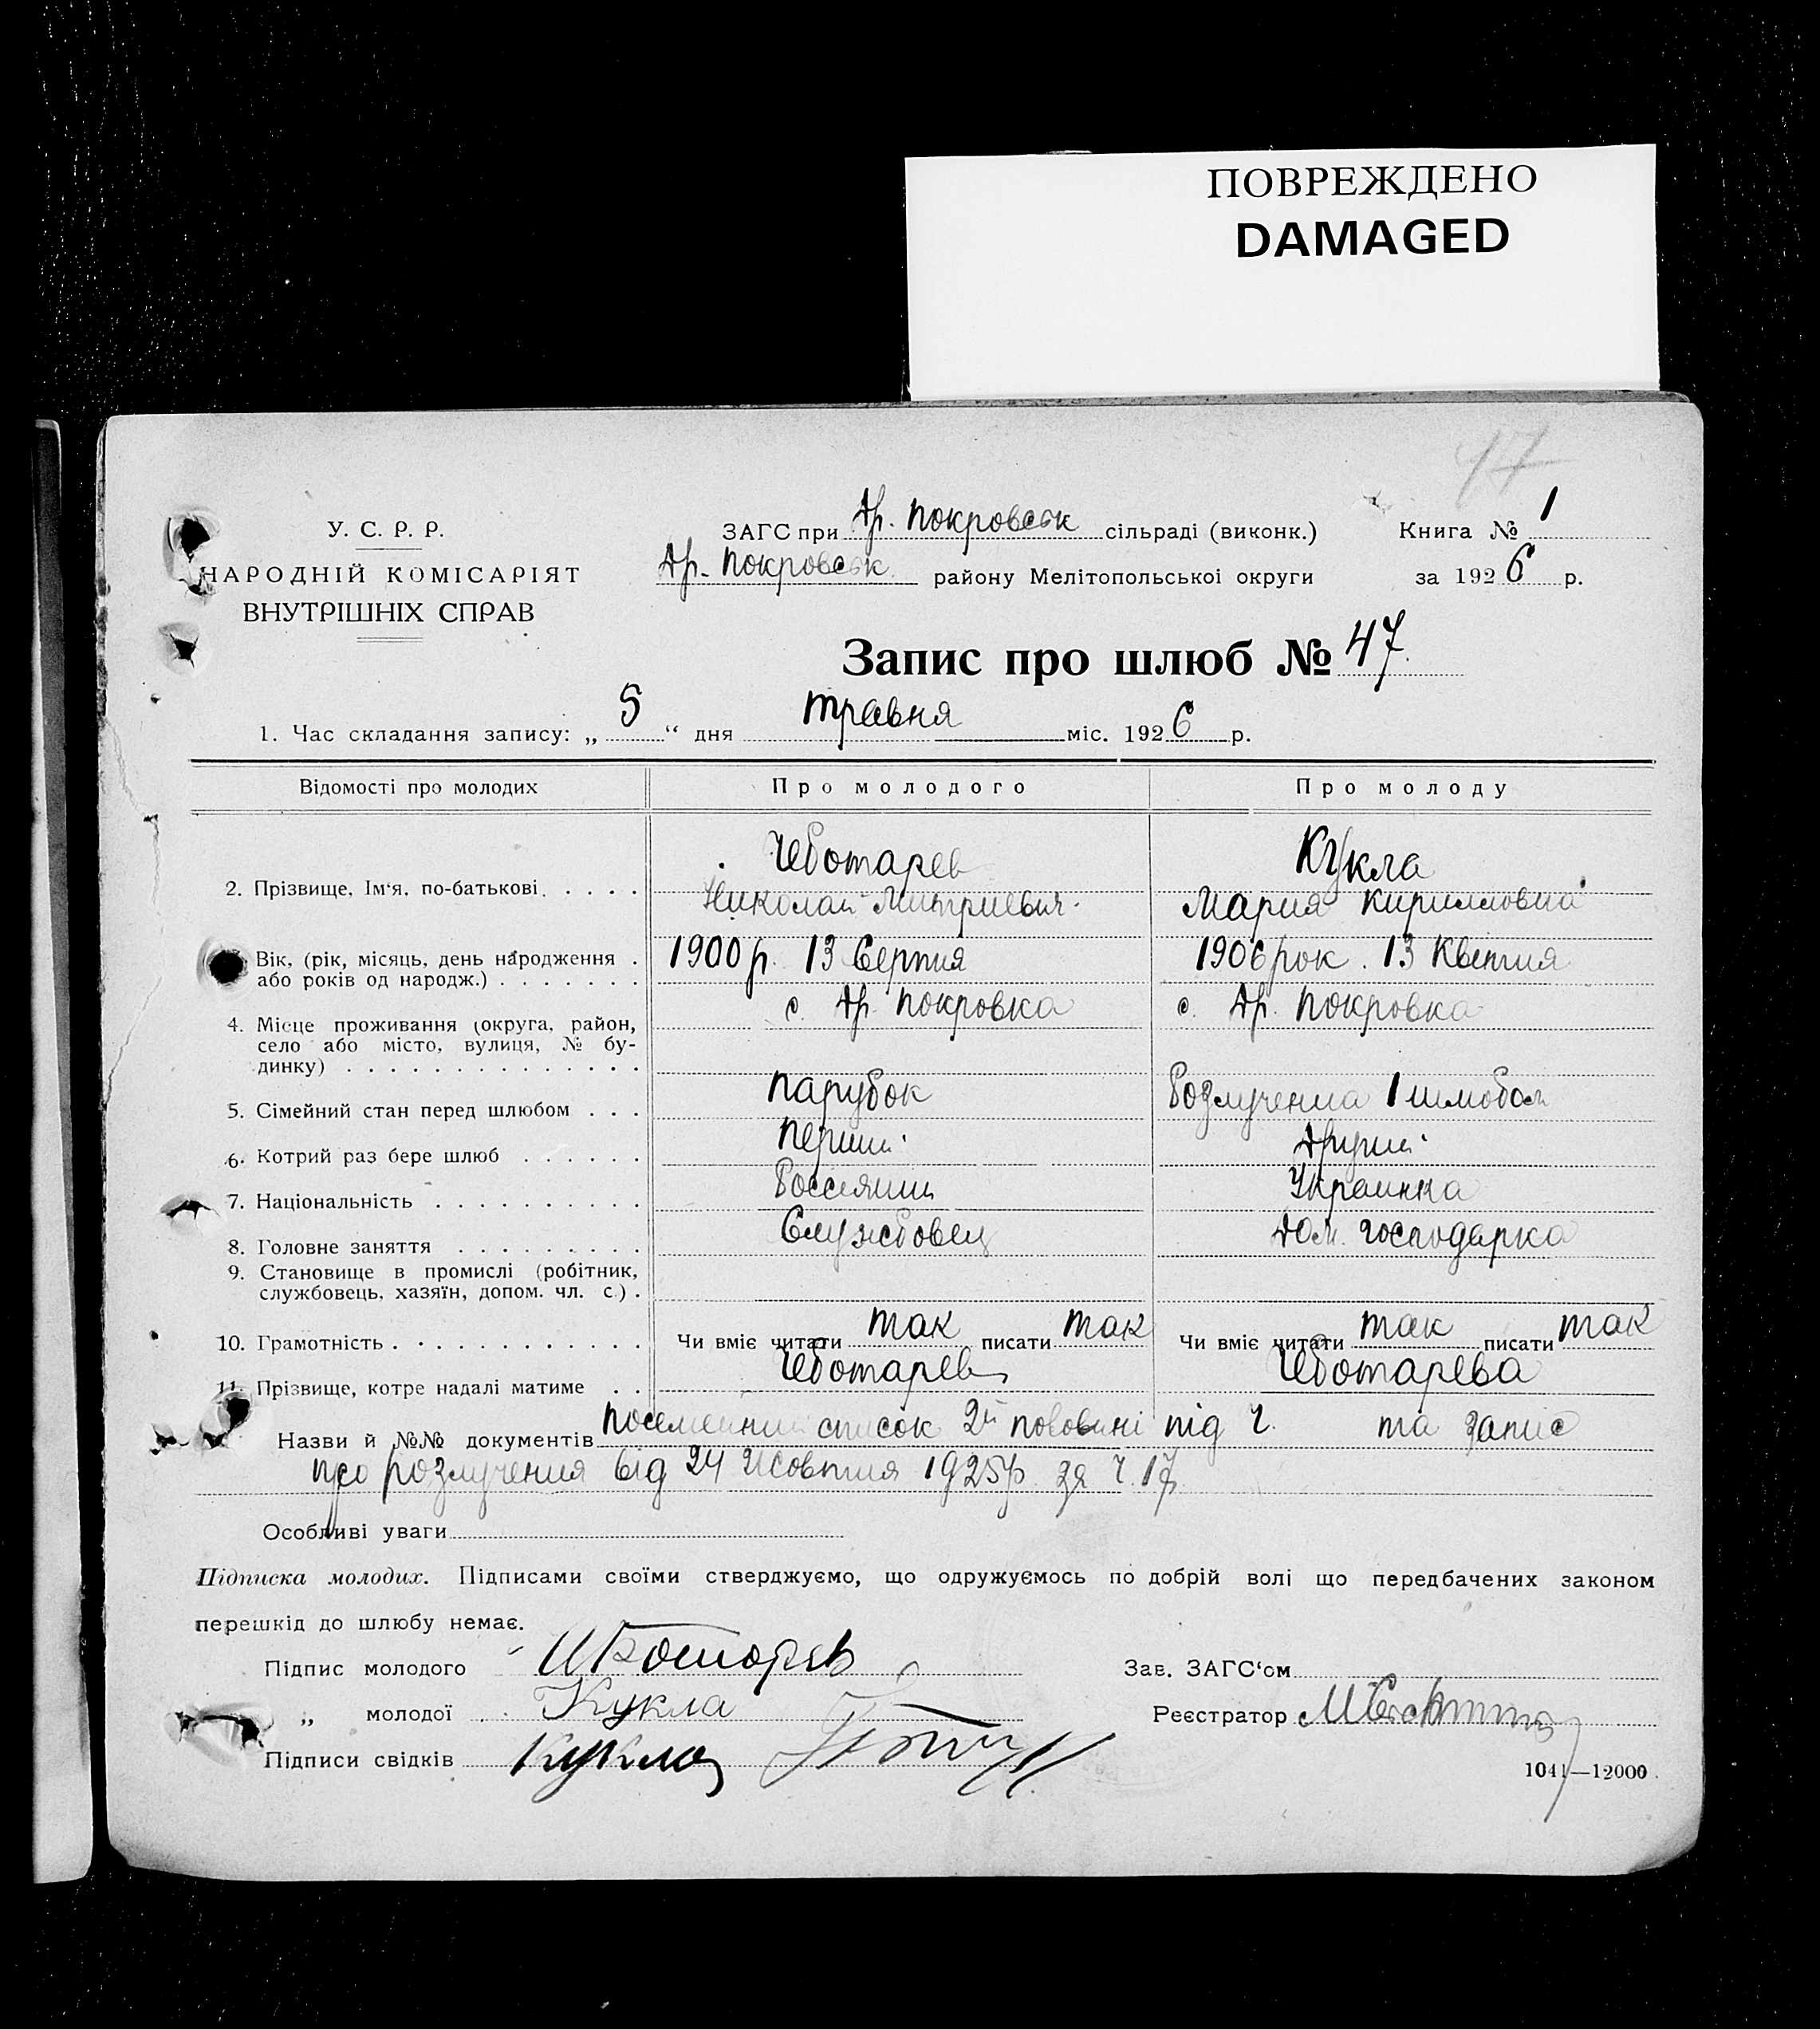 ПОВРЕЖДЕНО
DAMAGED
47
У. С. Р. Р.
НАРОДНІЙ КОМІСАРІЯТ
ВНУТРІШНІХ СПРАВ
ЗАГС при Др. Покровськ сільраді (виконк.)
Книга № 1
Др. Покровськ району Мелітопольської округи
за 1926 р.
Запис про шлюб № 47.
1. Час складання запису: „ 5 “ дня травня міс. 1926 р.
Відомості про молодих Про молодого Про молоду
Чеботарев Кукла
2. Прізвище, Ім‘я, по-батькові. . . . . Николай Митриевич. Мария Кирилловна
Вік, (рік, місяць, день народження . 1900 р. 13 Серпня 1906 рок. 13 Квітня
або років од народж.) . . . . . . .
с. Др. Покровка с. Др. Покровка
4. Місце проживання (округа, район,
село або місто, вулиця, № бу-
динку) . . . . . . . . . . . . . .
5. Сімейний стан перед шлюбом . . . парубок Розлученна 1 шлюбом
6. Котрий раз бере шлюб . . . . . . Перший Другий
7. Національність . . . . . . . . . . Россиянин Украинка
8. Головне заняття . . . . . . . . . Службовец Дом. господарка
9. Становище в промислі (робітник,
службовець, хазяїн, допом. чл. с.) .
10. Грамотність . . . . . . . . . . . . Чи вміє читати так писати так Чи вміє читати так писати так
11. Прізвище, котре надалі матиме . . Чеботарев Чеботарева
Назви й №№ документів список 2й половині під Ч. та запис
про розлучення від 24 Жовтня 1925 р. за Ч. 17
Особливі уваги
Підписка молодих. Підписами своїми стверджуємо, що одружуємось по добрій волі що передбачених законом
перешкід до шлюбу немає.
Підпис молодого
Зав. ЗАГС‘ом
„ молодої Кукла
Реєстратор
Підписи свідків Кукла
1041—12000